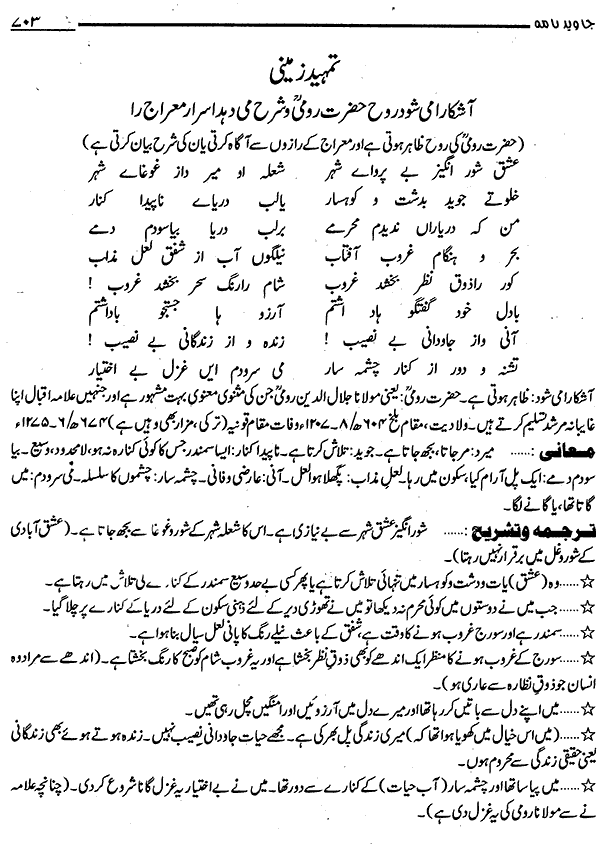 جاوید نامہ ۷۰۳
تمہید زمینی
آشکارا می شود روح حضرت رومیؒ و شرح می دہد اسرار معراج را
(حضرت رومیؒ کی روح ظاہر ہوتی ہے اور معراج کے رازوں سے آگاہ کرتی یا ان کی شرح بیان کرتی ہے)
عشق شور انگیز بے پرواے شہر شعلہ او میر داز غوغاے شہر
خلوتے جوید بدشت و کوہسار یالب دریاے ناپیدا کنار
من کہ دریاراں ندیدم محرمے برلب دریا بیاسودم دمے
بحر و ہنگام غروب آفتاب نیلگوں آب از شفق لعل مذاب
کور راذوق نظر بخشد غروب شام رارنگ سحر بخشد غروب !
بادل خود گفتگو ہاد اشتم آرزو ہا جستجو ہاداشتم
آنی واز جاودانی بے نصیب ! زندہ و از زندگانی بے نصیب !
تشنہ و دور از کنار چشمہ سار می سرودم ایں غزل بے اختیار
آشکارا می شود: ظاہر ہوتی ہے۔ حضرت رومیؒ: یعنی مولانا جلال الدین رومیؒ جن کی مثنوی معنوی بہت مشہور ہے اور جنہیں علامہ اقبال اپنا
غایبانہ مرشد تسلیم کرتے ہیں۔ ولادیت، مقام بلخ ۶۰۴ھ/۸۔۱۲۰۷ء وفات مقام قونیہ (ترکی، مزار بھی وہیں ہے) ۶۷۴ھ/۶۔۱۲۷۵ء
معانی: ...... میرد: مر جاتا، بجھ جاتا ہے۔ جوید: تلاش کرتا ہے۔ ناپیدا کنار: ایسا سمندر جس کا کوئی کنارہ نہ ہو، لامحدود، وسیع۔ بیا
سودم دمے: ایک پل آرام کیا، سکون میں رہا۔ لعل مذاب: پگھلا ہوا لعل۔ آنی: عارضی و فانی۔ چشمہ سار: چشموں کا سلسلہ۔ می سرودم: میں
گاتا تھا، یا گانے لگا۔
ترجمہ وتشریح: ...... شور انگیز عشق شہر سے بے نیازی ہے۔ اس کا شعلہ شہر کے شور و غوغا سے بجھ جاتا ہے۔ (عشق آبادی
کے شور و غل میں برقرار نہیں رہتا)۔
☆...... وہ (عشق) یا ت و دشت و کوہسار میں تنہائی تلاش کرتا ہے یا پھر کسی بے حد وسیع سمندر کے کنارے لی تلاش میں رہتا ہے۔
☆...... جب میں نے دوستوں میں کوئی محرم نہ دیکھا تو میں نے تھوڑی دیر کے لئے ذہنی سکون کے لئے دریا کے کنارے پر چلا گیا۔
☆...... سمندر ہے اور سورج غروب ہونے کا وقت ہے، شفق کے باعث نیلے رنگ کا پانی لعل سیال بنا ہوا ہے۔
☆...... سورج کے غروب ہونے کا منظر ایک اندھے کو بھی ذوق نظر بخشتا ہے اور یہ غروب شام کو صبح کا رنگ بخشتا ہے۔ (اندھے سے مراد وہ
انسان جو ذوق نظارہ سے عاری ہو)۔
☆...... میں اپنے دل سے باتیں کر رہا تھا اور میرے دل میں آرزوئیں اور امنگیں مچل رہی تھیں۔
☆...... (میں اس خیال میں کھویا ہوا تھا کہ) میری زندگی پل بھر کی ہے۔ مجھے حیات جاودانی نصیب نہیں۔ زندہ ہوتے ہوئے بھی زندگانی
یعنی حقیقی زندگی سے محروم ہوں۔
☆...... میں پیاسا تھا اور چشمہ سار (آب حیات) کے کنارے سے دور تھا۔ میں نے بے اختیار یہ غزل گانا شروع کر دی۔ (چنانچہ علامہ
نے سے مولانا رومی کی یہ غزل دی ہے)۔